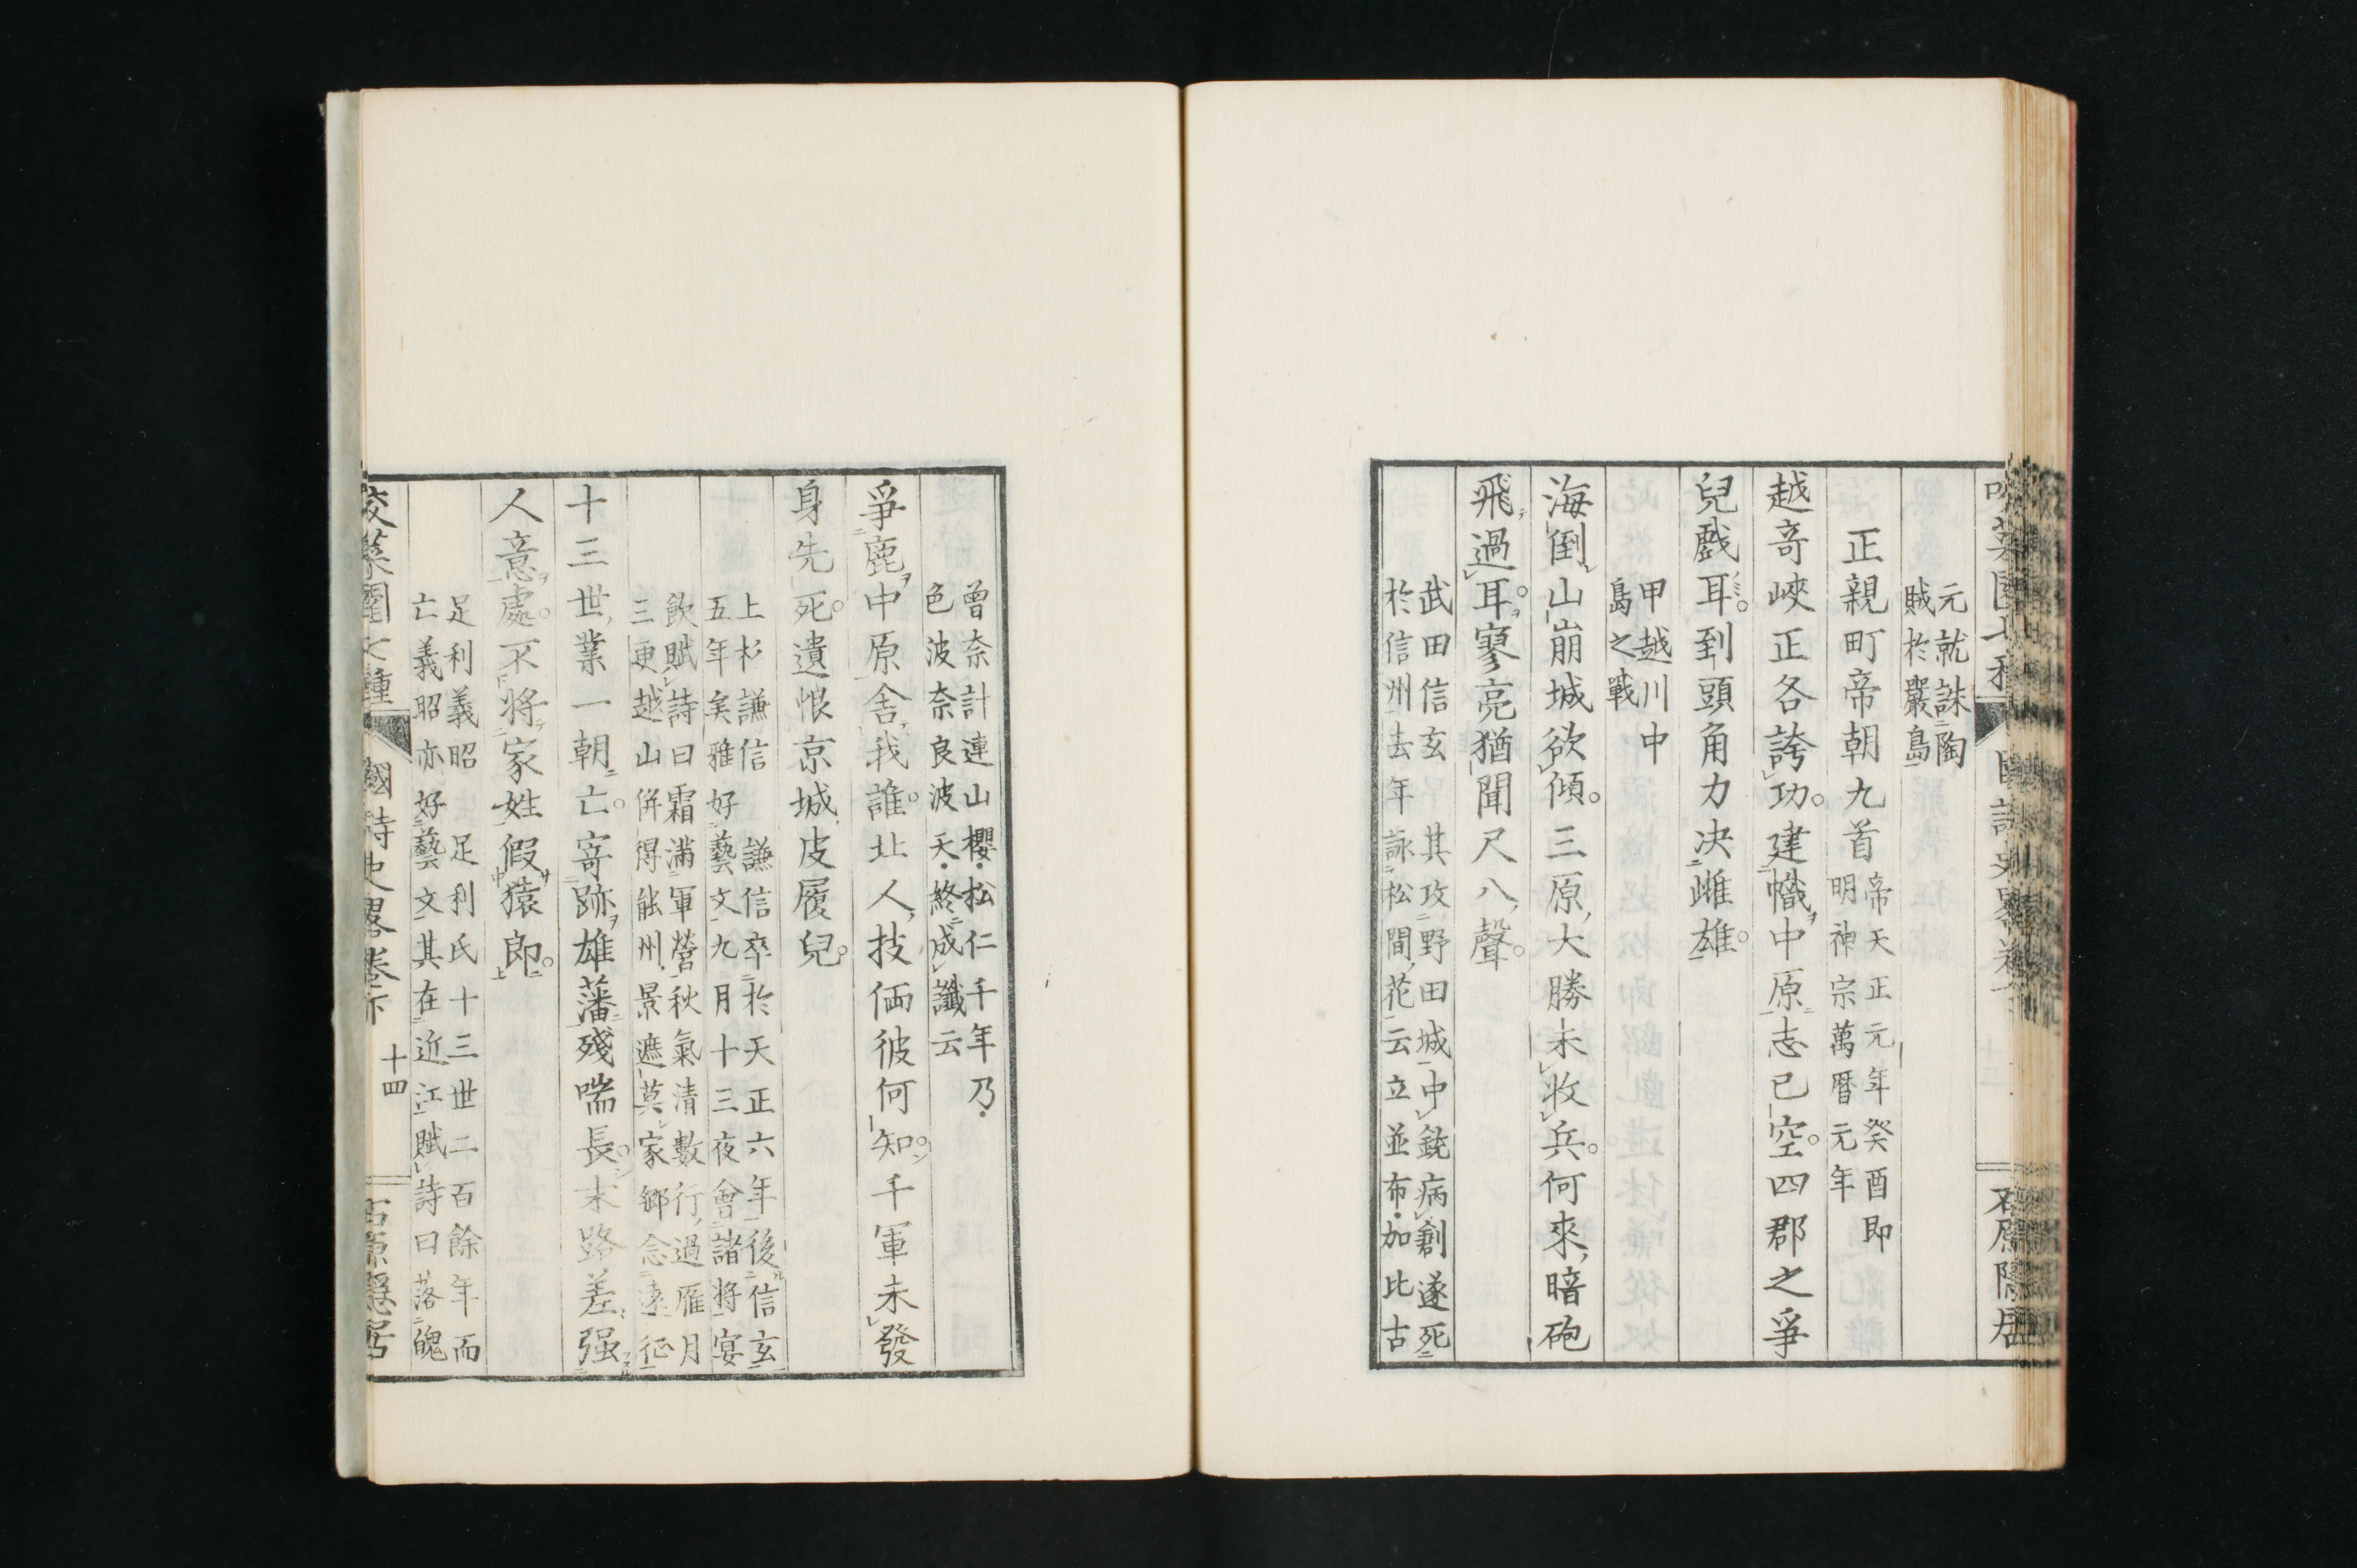 元就誅陶
賊於嚴島
正親町帝朝九首
帝天正元年癸酉即
明神宗萬曆元年
越奇峽正各誇功。建幟中原志已空。四郡之爭
兒戲耳。到頭角力決雌雄。
甲越川中
島之戰
海倒山崩城欲傾。三原大勝未收兵。何來暗砲
飛過耳。寥亮猶聞尺八聲。
武田信玄其攻野田城中銃病創遂死
於信州去年詠松間花云立並布加比古
曾奈計連山櫻松仁千年乃
色波奈良波天終成讖云
爭鹿中原舍我誰。北人技倆彼何知。千軍未發
身先死。遺恨京城皮履兒。
上杉謙信謙信卒於天正六年後信玄
五年矣雅好藝文九月十三夜會諸將宴
飲賦詩曰霜滿軍營秋氣清數行過雁月
三更越山併得能州景遮莫家鄉念遠征
十三世業一朝亡。寄跡雄藩殘喘長。末路差强
人意處。不將家姓假猿郎。
足利義昭足利氏十三世二百餘年而
亡義昭亦好藝文其在近江賦詩曰落魄
國詩史畧卷下
十四
石原隱居